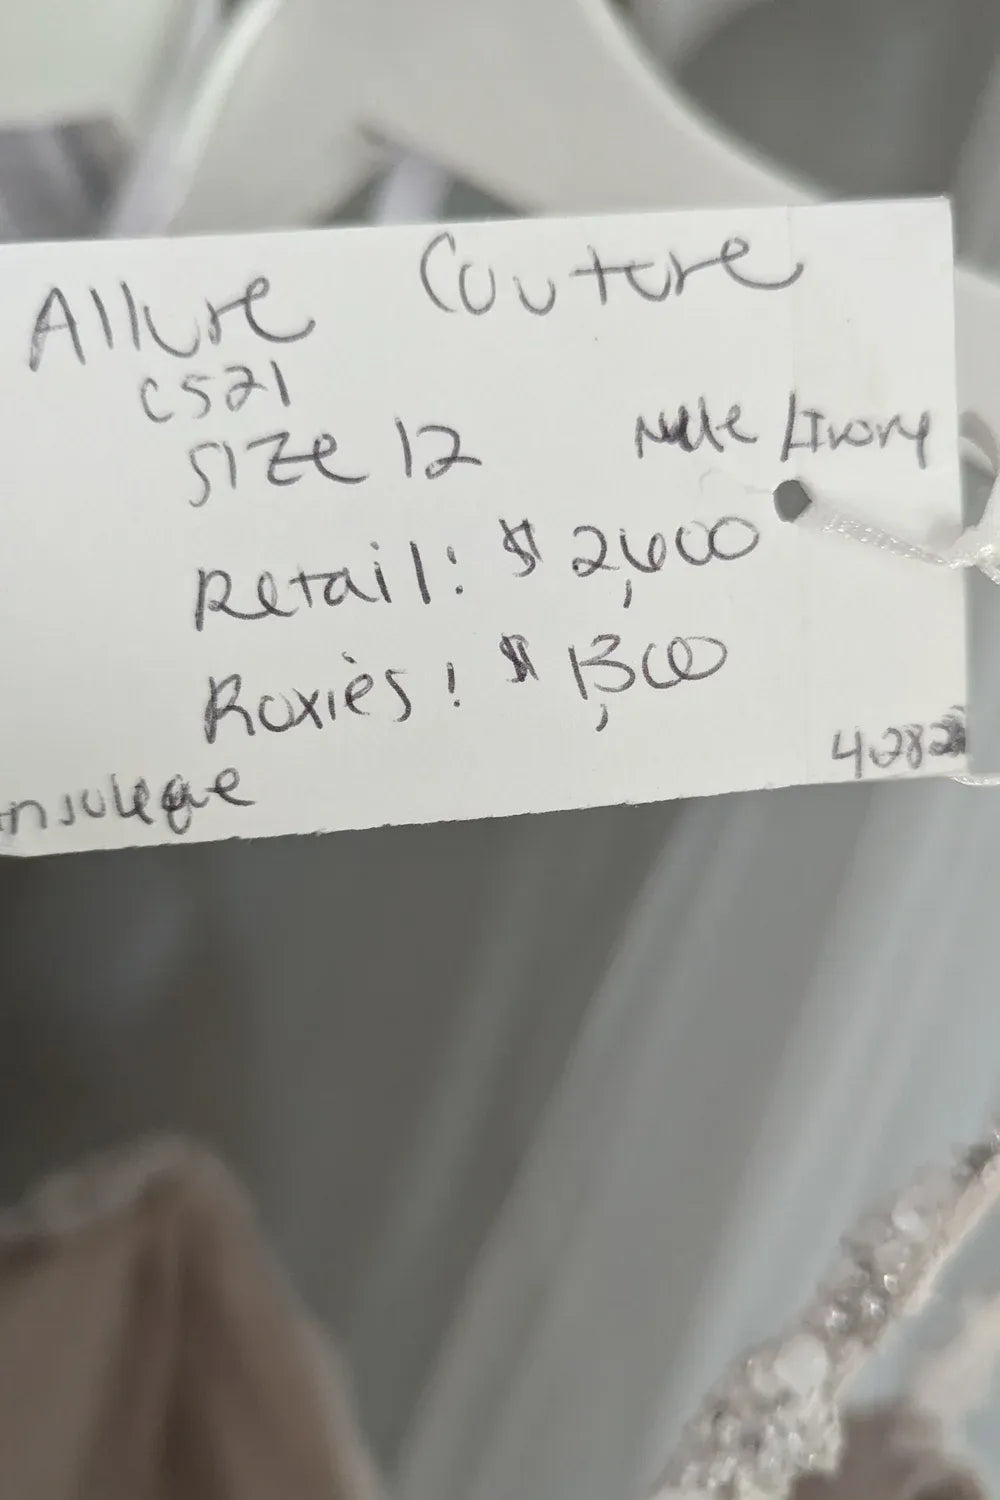 Allure Couture
C521
Size 12
Nude / Ivory
Retail: $ 2,600
Roxie's: $ 1,300